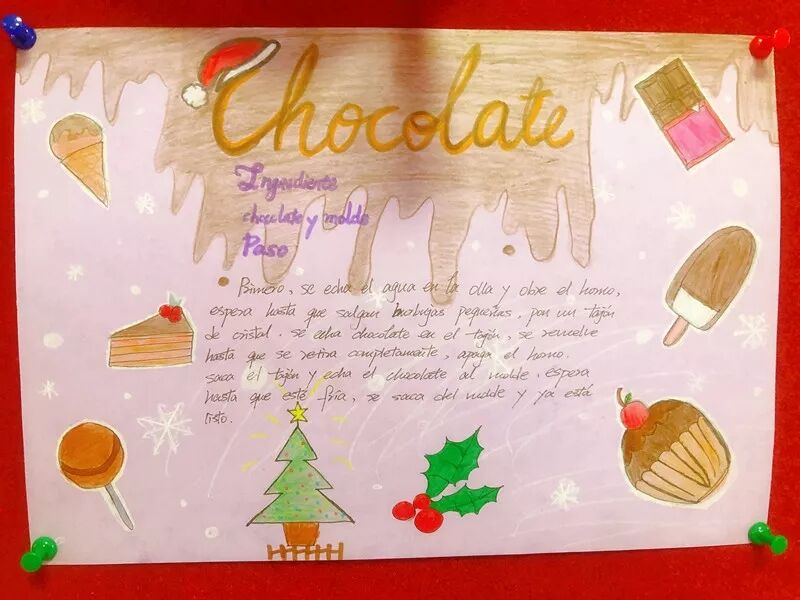 Chocolate
Ingrediente
chocolate y molde
Paso
Primero, se echa el agua en la olla y abre el horno,
espera hasta que salgan burbujas pequeñas. pon un tajón
de cristal. se echa chocolate en el tajón, se revuelve
hasta que se retira completamente, apaga el horno.
saca el tajón y echa el chocolate al molde. espera
hasta que esté fría, se saca del molde y ya está
listo.